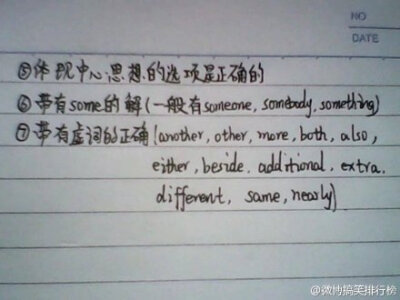 NO
DATE
⑤体现中心思想的选项是正确的
⑥带有some的解(一般有someone, somebody, something)
⑦带有虚词的正确(another, other, more, both, also,
either, beside, additional, extra.
different, same, nearly)
@微博搞笑排行榜